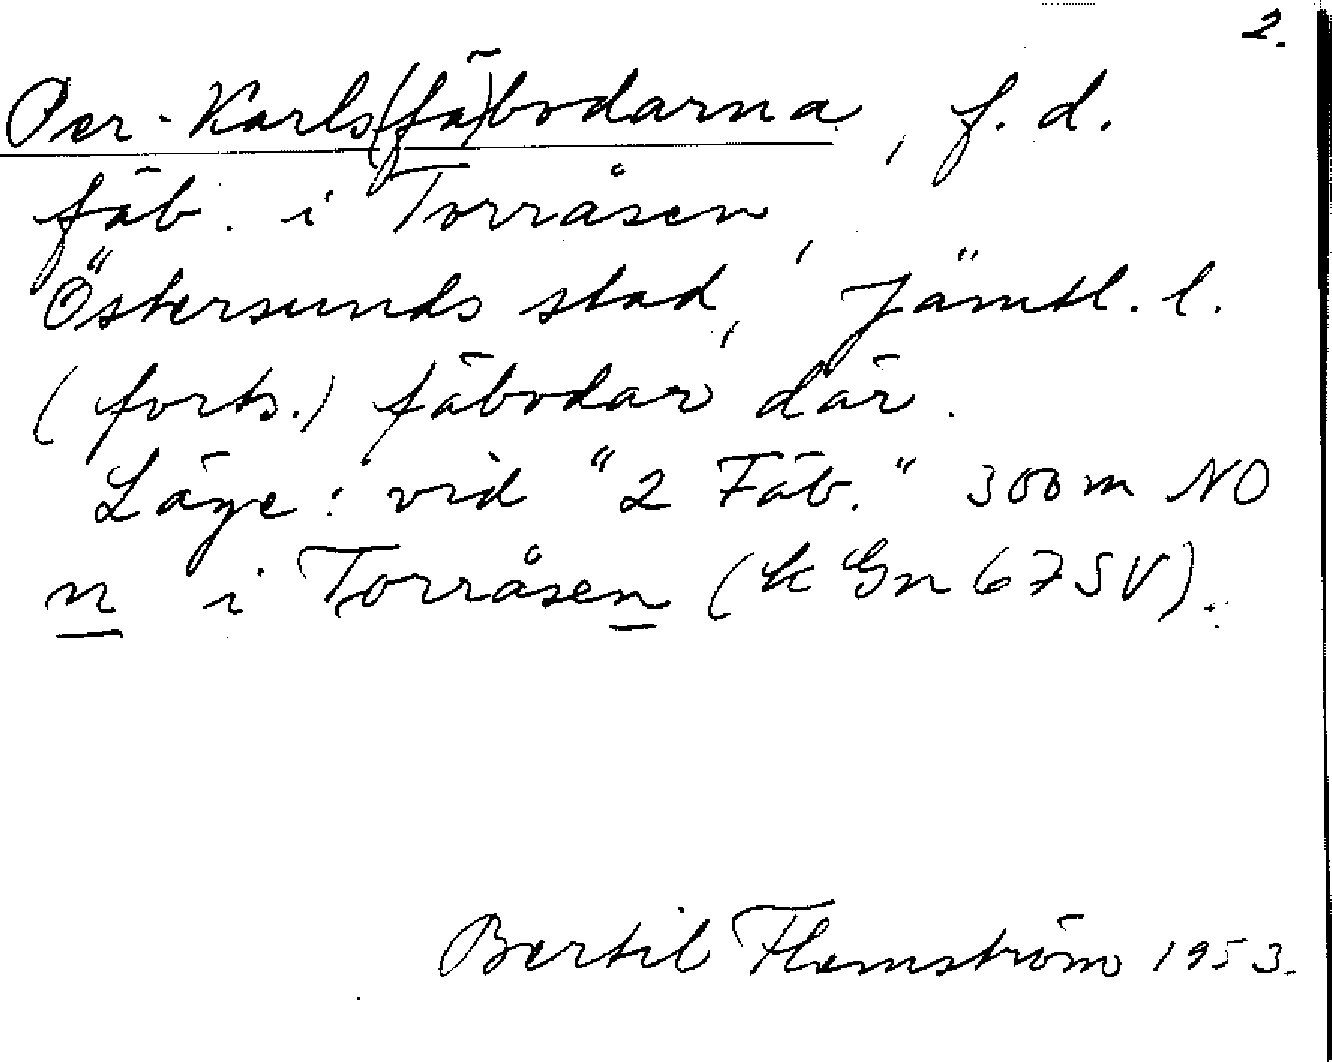 2.
Per-Karls(fä)bodarna, f.d.
fäb. i Torråsen,
Östersunds stad, Jämtl. l.
(forts.) fäbodar där.
Läge: vid "2 Fäb." 300m NO
n i Torråsen (k Gn 67SV).
Bertil Flemström 1953.